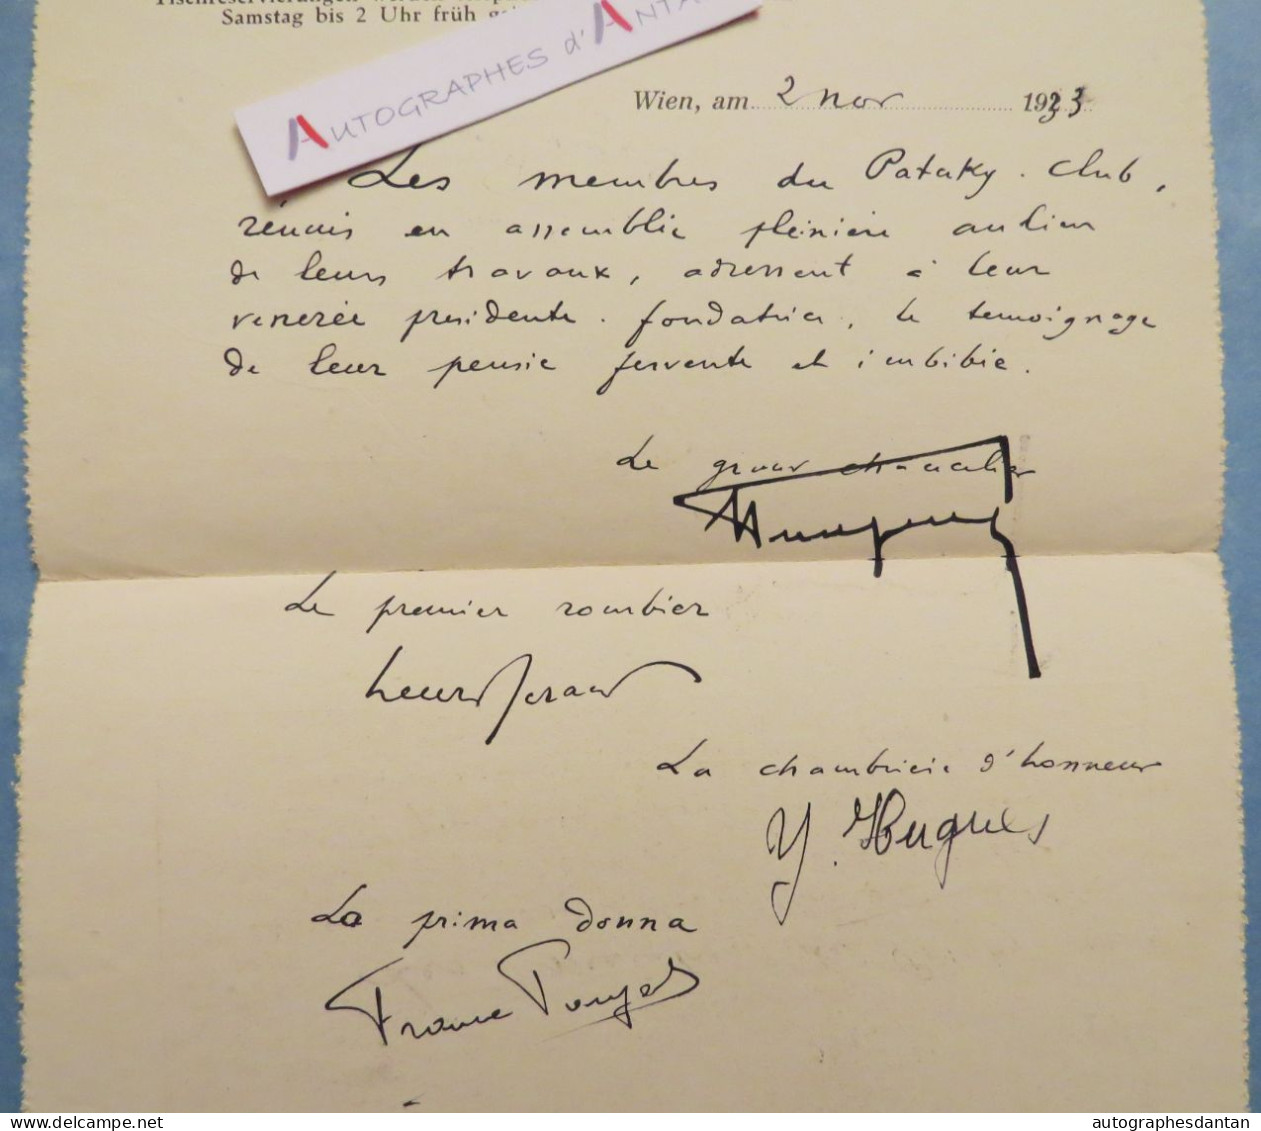 Samstag bis 2 Uhr früh
AUTOGRAPHES d'ANTA
Wien, am 2 nov 1933
Les membres du Pataky-Club,
réunis en assemblée plénière au lieu
de leurs travaux, adressent à leur
vénérée présidente-fondatrice, le témoignage
de leur pensée fervente et imbibée.
Le grand chancelier
Le premier
La chambrière d'honneur
Y. Hugues
La prima donna
France
autographesdantan
delcampe.net